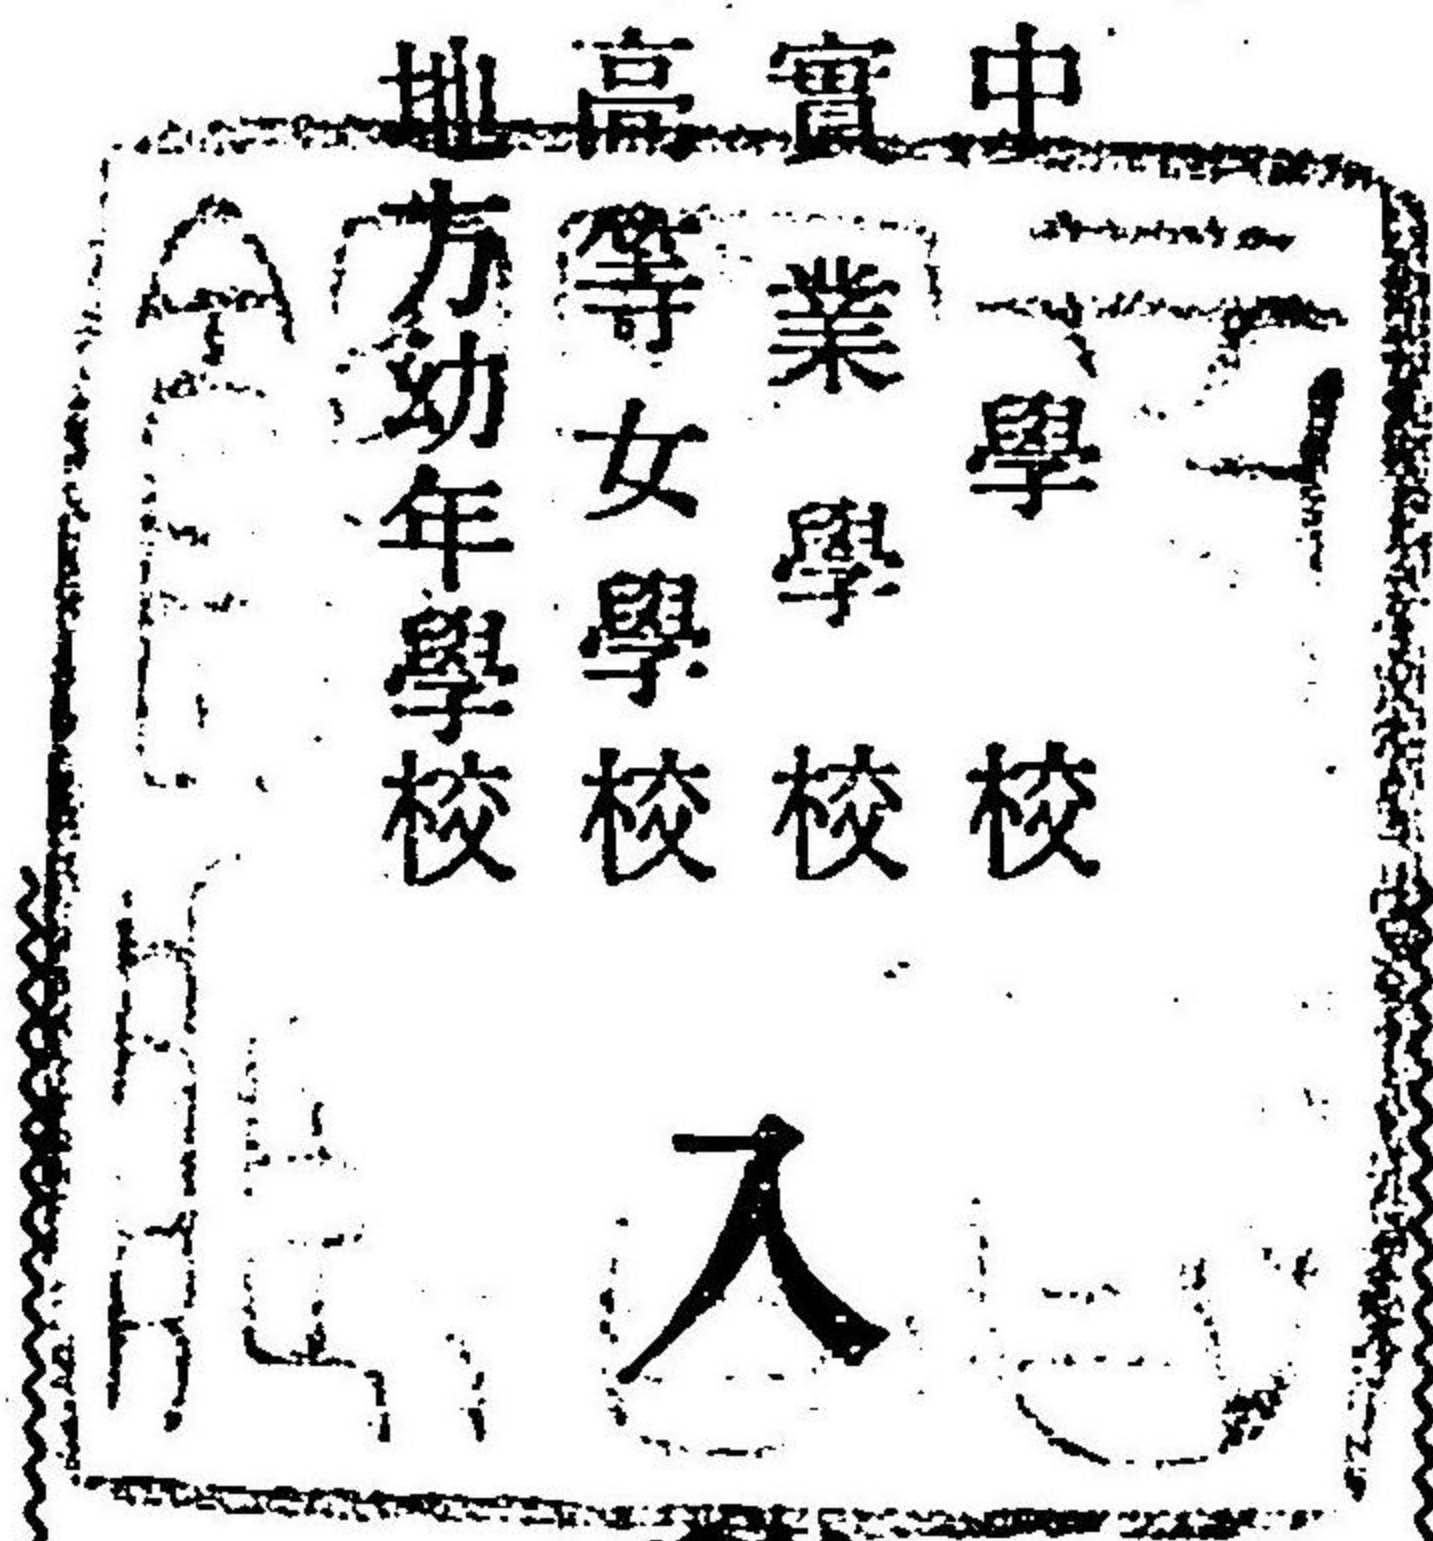 中學校
實業學校
高等女學校
地方幼年學校
入